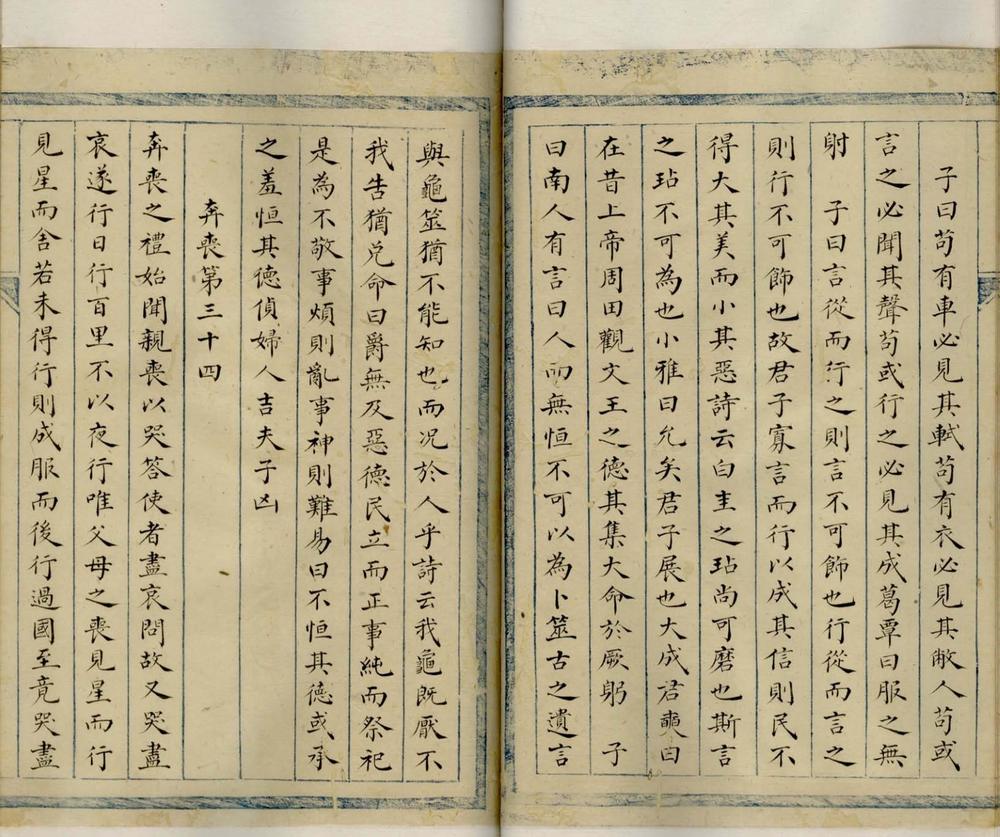 子曰苟有車必見其軾苟有衣必見其敝人苟或
言之必聞其聲苟或行之必見其成葛覃曰服之無
射　子曰言從而行之則言不可飾也行從而言之
則行不可飾也故君子寡言而行以成其信則民不
得大其美而小其惡詩云白圭之玷尚可磨也斯言
之玷不可為也小雅曰允矣君子展也大成君奭曰
在昔上帝周田觀文王之德其集大命於厥躬　子
曰南人有言曰人而無恒不可以為卜筮古之遺言
與龜筮猶不能知也而况於人乎詩云我龜既厭不
我告猶兌命曰爵無及惡德民立而正事純而祭祀
是為不敬事煩則亂事神則難易曰不恒其德或承
之羞恒其德偵婦人吉夫子凶
奔喪第三十四
奔喪之禮始聞親喪以哭答使者盡哀問故又哭盡
哀遂行日行百里不以夜行唯父母之喪見星而行
見星而舍若未得行則成服而後行過國至竟哭盡